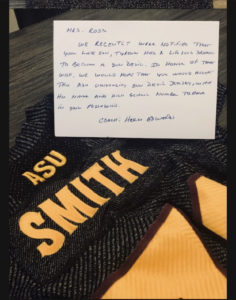 MRS. ROSS,
WE RECENTLY WERE NOTIFIED THAT
YOUR LATE SON, TYREEN HAD A LIFELONG DREAM
TO BECOME A SUN DEVIL. IN HONOR OF THAT
WISH, WE WOULD HOPE THAT YOU WOULD ACCEPT
THIS ASU UNIVERSITY SUN DEVIL JERSEY, WITH
HIS NAME AND HIGH SCHOOL NUMBER
IN YOUR
COACH: HERM EDWARDS
ASU
SMITH